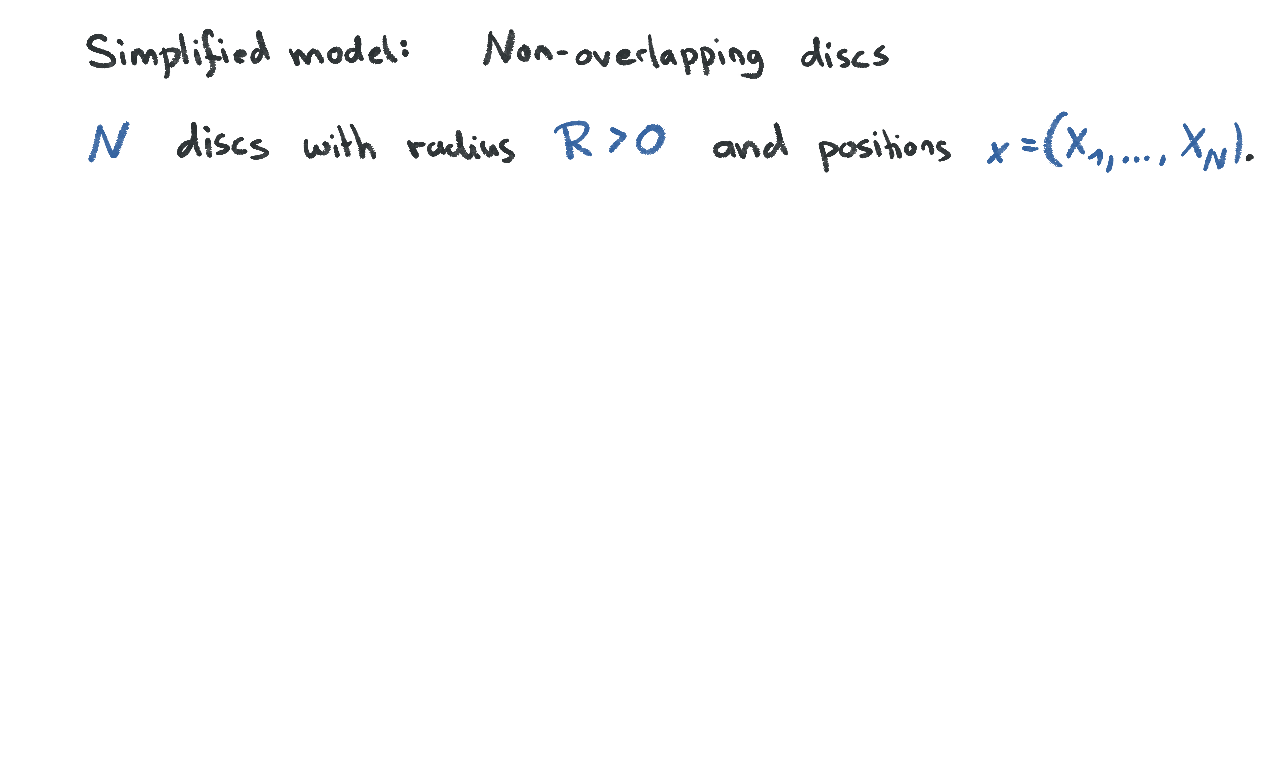 Simplified model: Non-overlapping discs
N discs with radius R > 0 and positions x = (X₁, ..., X_N).